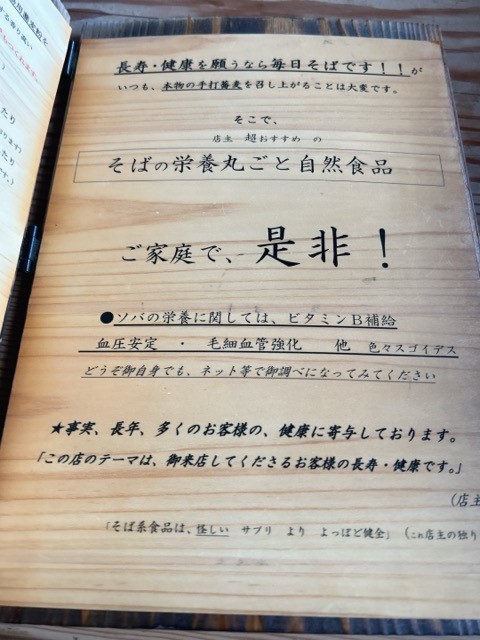 長寿・健康を願うなら毎日そばです！！が
いつも、本物の手打蕎麦を召し上がることは大変です。
そこで、
店主 超おすすめ の
そばの栄養丸ごと自然食品
ご家庭で、是非！
●ソバの栄養に関しては、ビタミンB補給
血圧安定 ・ 毛細血管強化 他 色々スゴイデス
どうぞ御自身でも、ネット等で御調べになってみてください
★事実、長年、多くのお客様の、健康に寄与しております。
「この店のテーマは、御来店してくださるお客様の長寿・健康です。」
(店主
「そば系食品は、怪しい サプリ より よっぽど健全」 (これ店主の独り